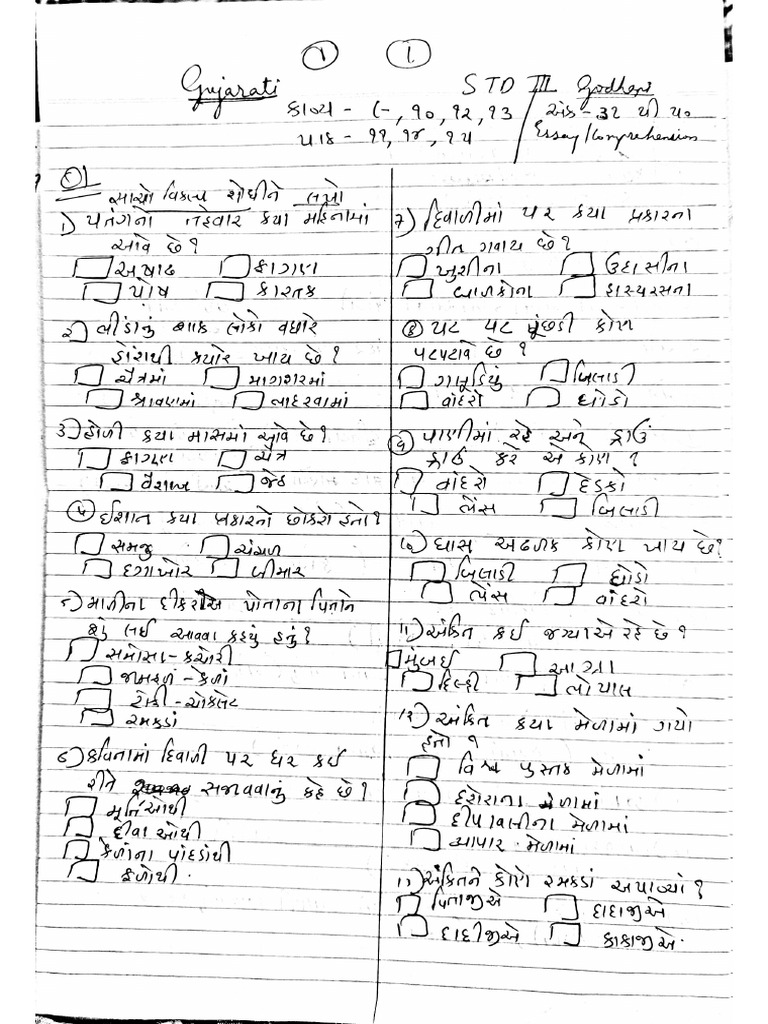 ૧ 1
Gujarati STD III Godhani
કાવ્ય - ૮, ૧૦, ૧૨, ૧૩ / અંક - ૩૨ થી ૫૦
પાઠ - ૧૧, ૧૪, ૧૫ / Essay/Comprehension
સાચો વિકલ્પ શોધીને લખો
૧) પતંગનો તહેવાર કયા મહિનામાં
આવે છે?
અષાઢ ફાગણ
પોષ કારતક
૨) ભીંડાનું શાક લોકો વધારે
હોંશથી ક્યારે ખાય છે?
ચૈત્રમાં માગશરમાં
શ્રાવણમાં ભાદરવામાં
૩) હોળી કયા માસમાં આવે છે?
ફાગણ ચૈત્ર
વૈશાખ જેઠ
૪) ઈશાન કયા પ્રકારનો છોકરો હતો?
સમજુ ચંચળ
દગાખોર બીમાર
૫) માળીના દીકરાએ પોતાના પિતાને
શું લઈ આવવા કહ્યું હતું?
સમોસા - કચોરી
જામફળ - કેળાં
ટોફી - ચોકલેટ
રમકડાં
૬) કવિતામાં દિવાળી પર ઘર કઈ
રીતે સજાવવાનું કહે છે?
મૂર્તિઓથી
દીવાઓથી
કેળોના પાંદડાંથી
ફળોથી.
૭) દિવાળીમાં પર કયા પ્રકારના
ગીત ગવાય છે?
ખુશીના ઉદાસીના
બાળકોના હાસ્યરસના
૮) પટ પટ પૂંછડી કોણ
પટપટાવે છે?
ગલૂડિયું બિલાડી
વાંદરો ઘોડો
૯) પાણીમાં રહે અને ડ્રાઉં
ડ્રાઉં કરે એ કોણ?
વાંદરો દેડકો
ભેંસ બિલાડી
૧૦) ઘાસ અઢળક કોણ ખાય છે?
બિલાડી ઘોડો
ભેંસ વાંદરો
૧૧) અંકિત કઈ જગ્યાએ રહે છે?
મુંબઈ આગ્રા
દિલ્હી ભોપાલ
૧૨) અંકિત કયા મેળામાં ગયો
હતો?
વિશ્વ પુસ્તક મેળામાં
દશેરાના મેળામાં
દીપાવલીના મેળામાં
આપાર મેળામાં
૧૩) અંકિતને કોણે રમકડાં અપાવ્યાં?
પિતાજીએ દાદાજીએ
દાદીજીએ કાકાજીએ.